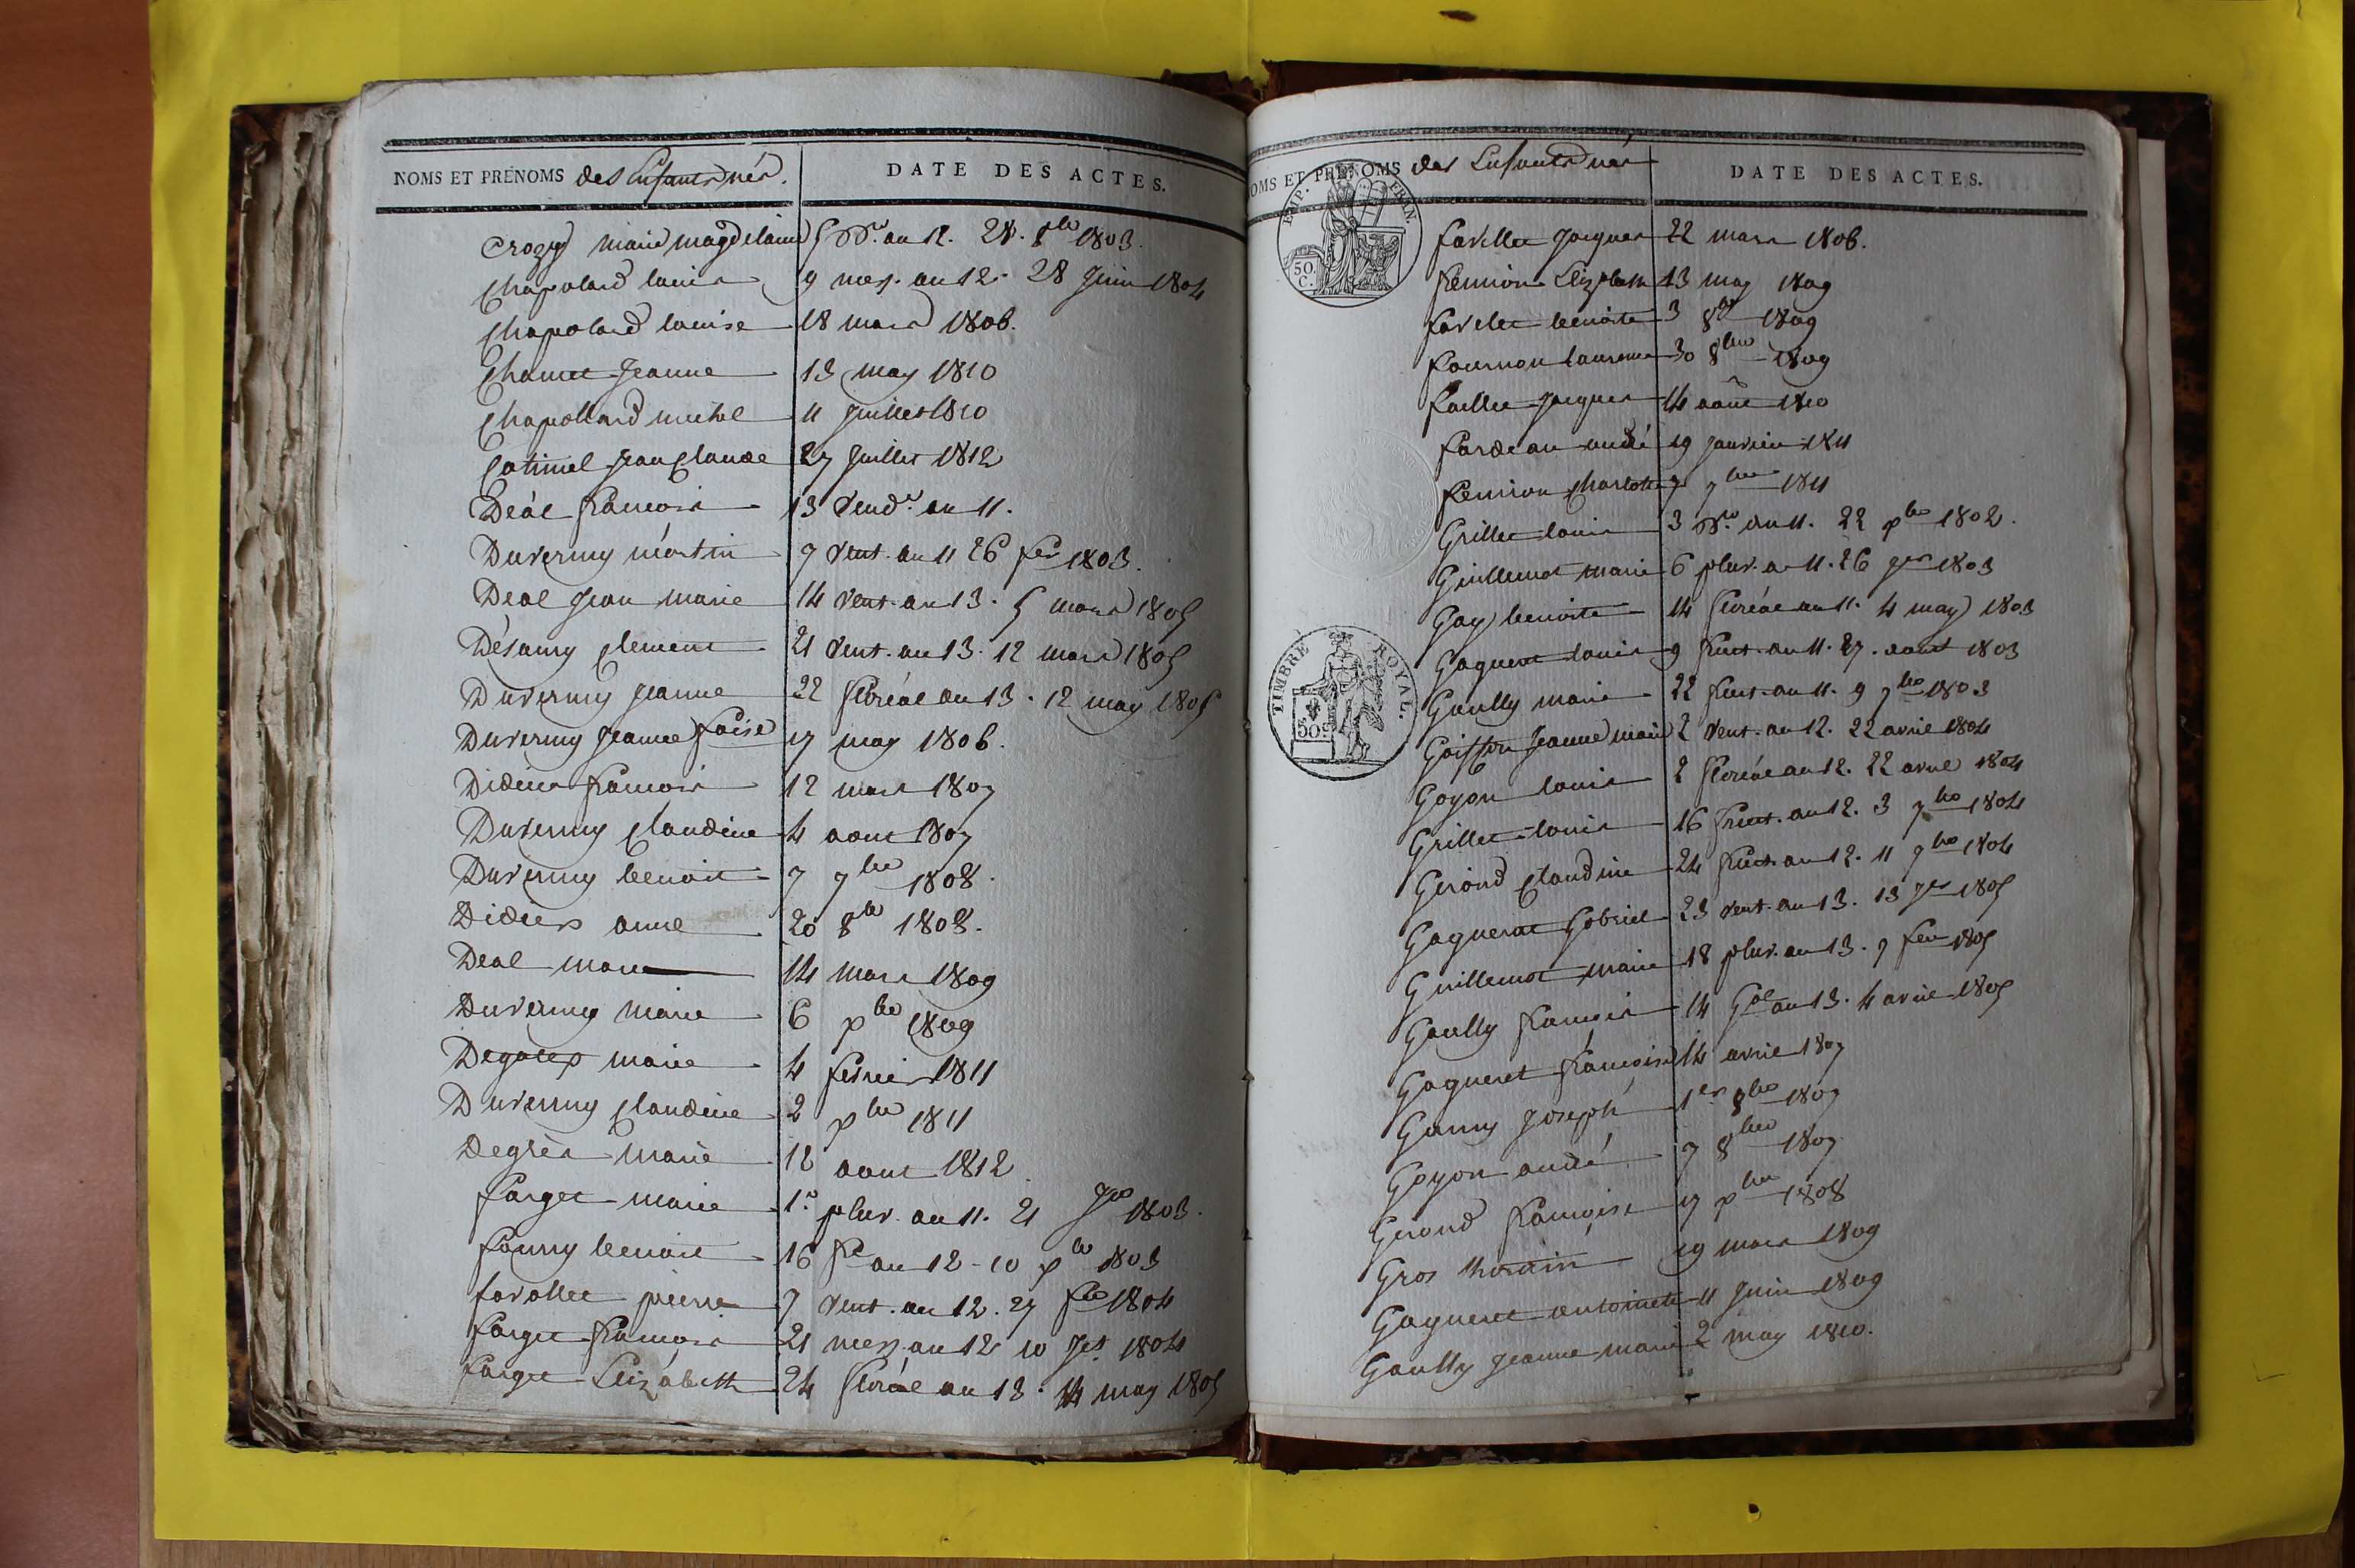 NOMS ET PRENOMS des Enfants nés.
DATE DES ACTES.
Crozy marie magdelaine 5 Bre. an 12. 28. 8bre 1803.
Chapolard louis 9 mess. an 12. 28 Juin 1804
Chapolard louise 18 mars 1806.
Chanet Jeanne 13 may 1810
Chapollard michel 11 Juillet 1810
Catimel Jean Claude 27 Juillet 1812
Déal francois 13 vend.re an 11.
Duverny martin 7 vent. an 11 26 fer 1803.
Deal Jean marie 14 vent. an 13. 5 mars 1805
Désamy clement 21 vent. an 13. 12 mars 1805
Duverny Jeanne 22 floréal an 13. 12 may 1805
Duverny Jeanne foise 17 may 1806.
Didier francois 12 mars 1807
Duverny Claudine 4 aout 1807
Duverny benoit 7 7bre 1808.
Didier anne 20 8bre 1808.
Deal marie 14 mars 1809
Duverny marie 6 xbre 1809
Degatex marie 4 fevrier 1811
Duverny claudine 2 xbre 1811
Degrès marie 12 aout 1812
farget marie 1er pluv. an 11. 21 Jer 1803.
fanny benoit 16 fre an 12 - 10 xbre 1803
favollet pierre 7 vent. an 12. 27 fer 1804
farget francois 21 mess. an 12 10 Jet 1804
farget Elizabeth 24 floréal an 13. 14 may 1805
NOMS ET PRENOMS des Enfants nés
DATE DES ACTES.
EMP. FRAN.
50. C.
favillet Jacques 22 mars 1806.
fennion Elizabeth 13 may 1809
favelet benoite 3 8bre 1809
fournon laurence 30 8bre 1809
faillet Jacques 14 août 1810
fardeau andré 19 Janvier 1811
fennion charlotte 7 7bre 1811
Grillet louis 3 Nre an 11. 22 xbre 1802.
Guillemot marie 6 pluv. an 11. 26 Jer 1803
Gay benoite 14 floréal an 11. 4 may 1803
Gagneret louis 9 fruct. an 11. 27. aout 1803
TIMBRE ROYAL.
50.C
Gaully marie 22 fruct. an 11. 9 7bre 1803
Goiffon Jeanne marie 2 vent. an 12. 22 avril 1804
Goyon louis 2 floréal an 12. 22 avril 1804
Grillet louis 16 fruct. an 12. 3 7bre 1804
Girond claudine 24 fruct. an 12. 11 7bre 1804
Gagneret Gabriel 23 vent. an 13. 13 Jer 1805
Guillemot marie 18 pluv. an 13. 7 fev 1805
Gaully francois 14 Gal an 13. 4 avril 1805
Gagneret francoise 14 avril 1807
Ganny Joseph 1er 8bre 1807
Goyon andré 7 8bre 1807.
Girond francoise 17 xbre 1808
Gros 19 mars 1809
Gagneret antoinete 11 Juin 1809
Gaully Jeanne marie 2 may 1810.